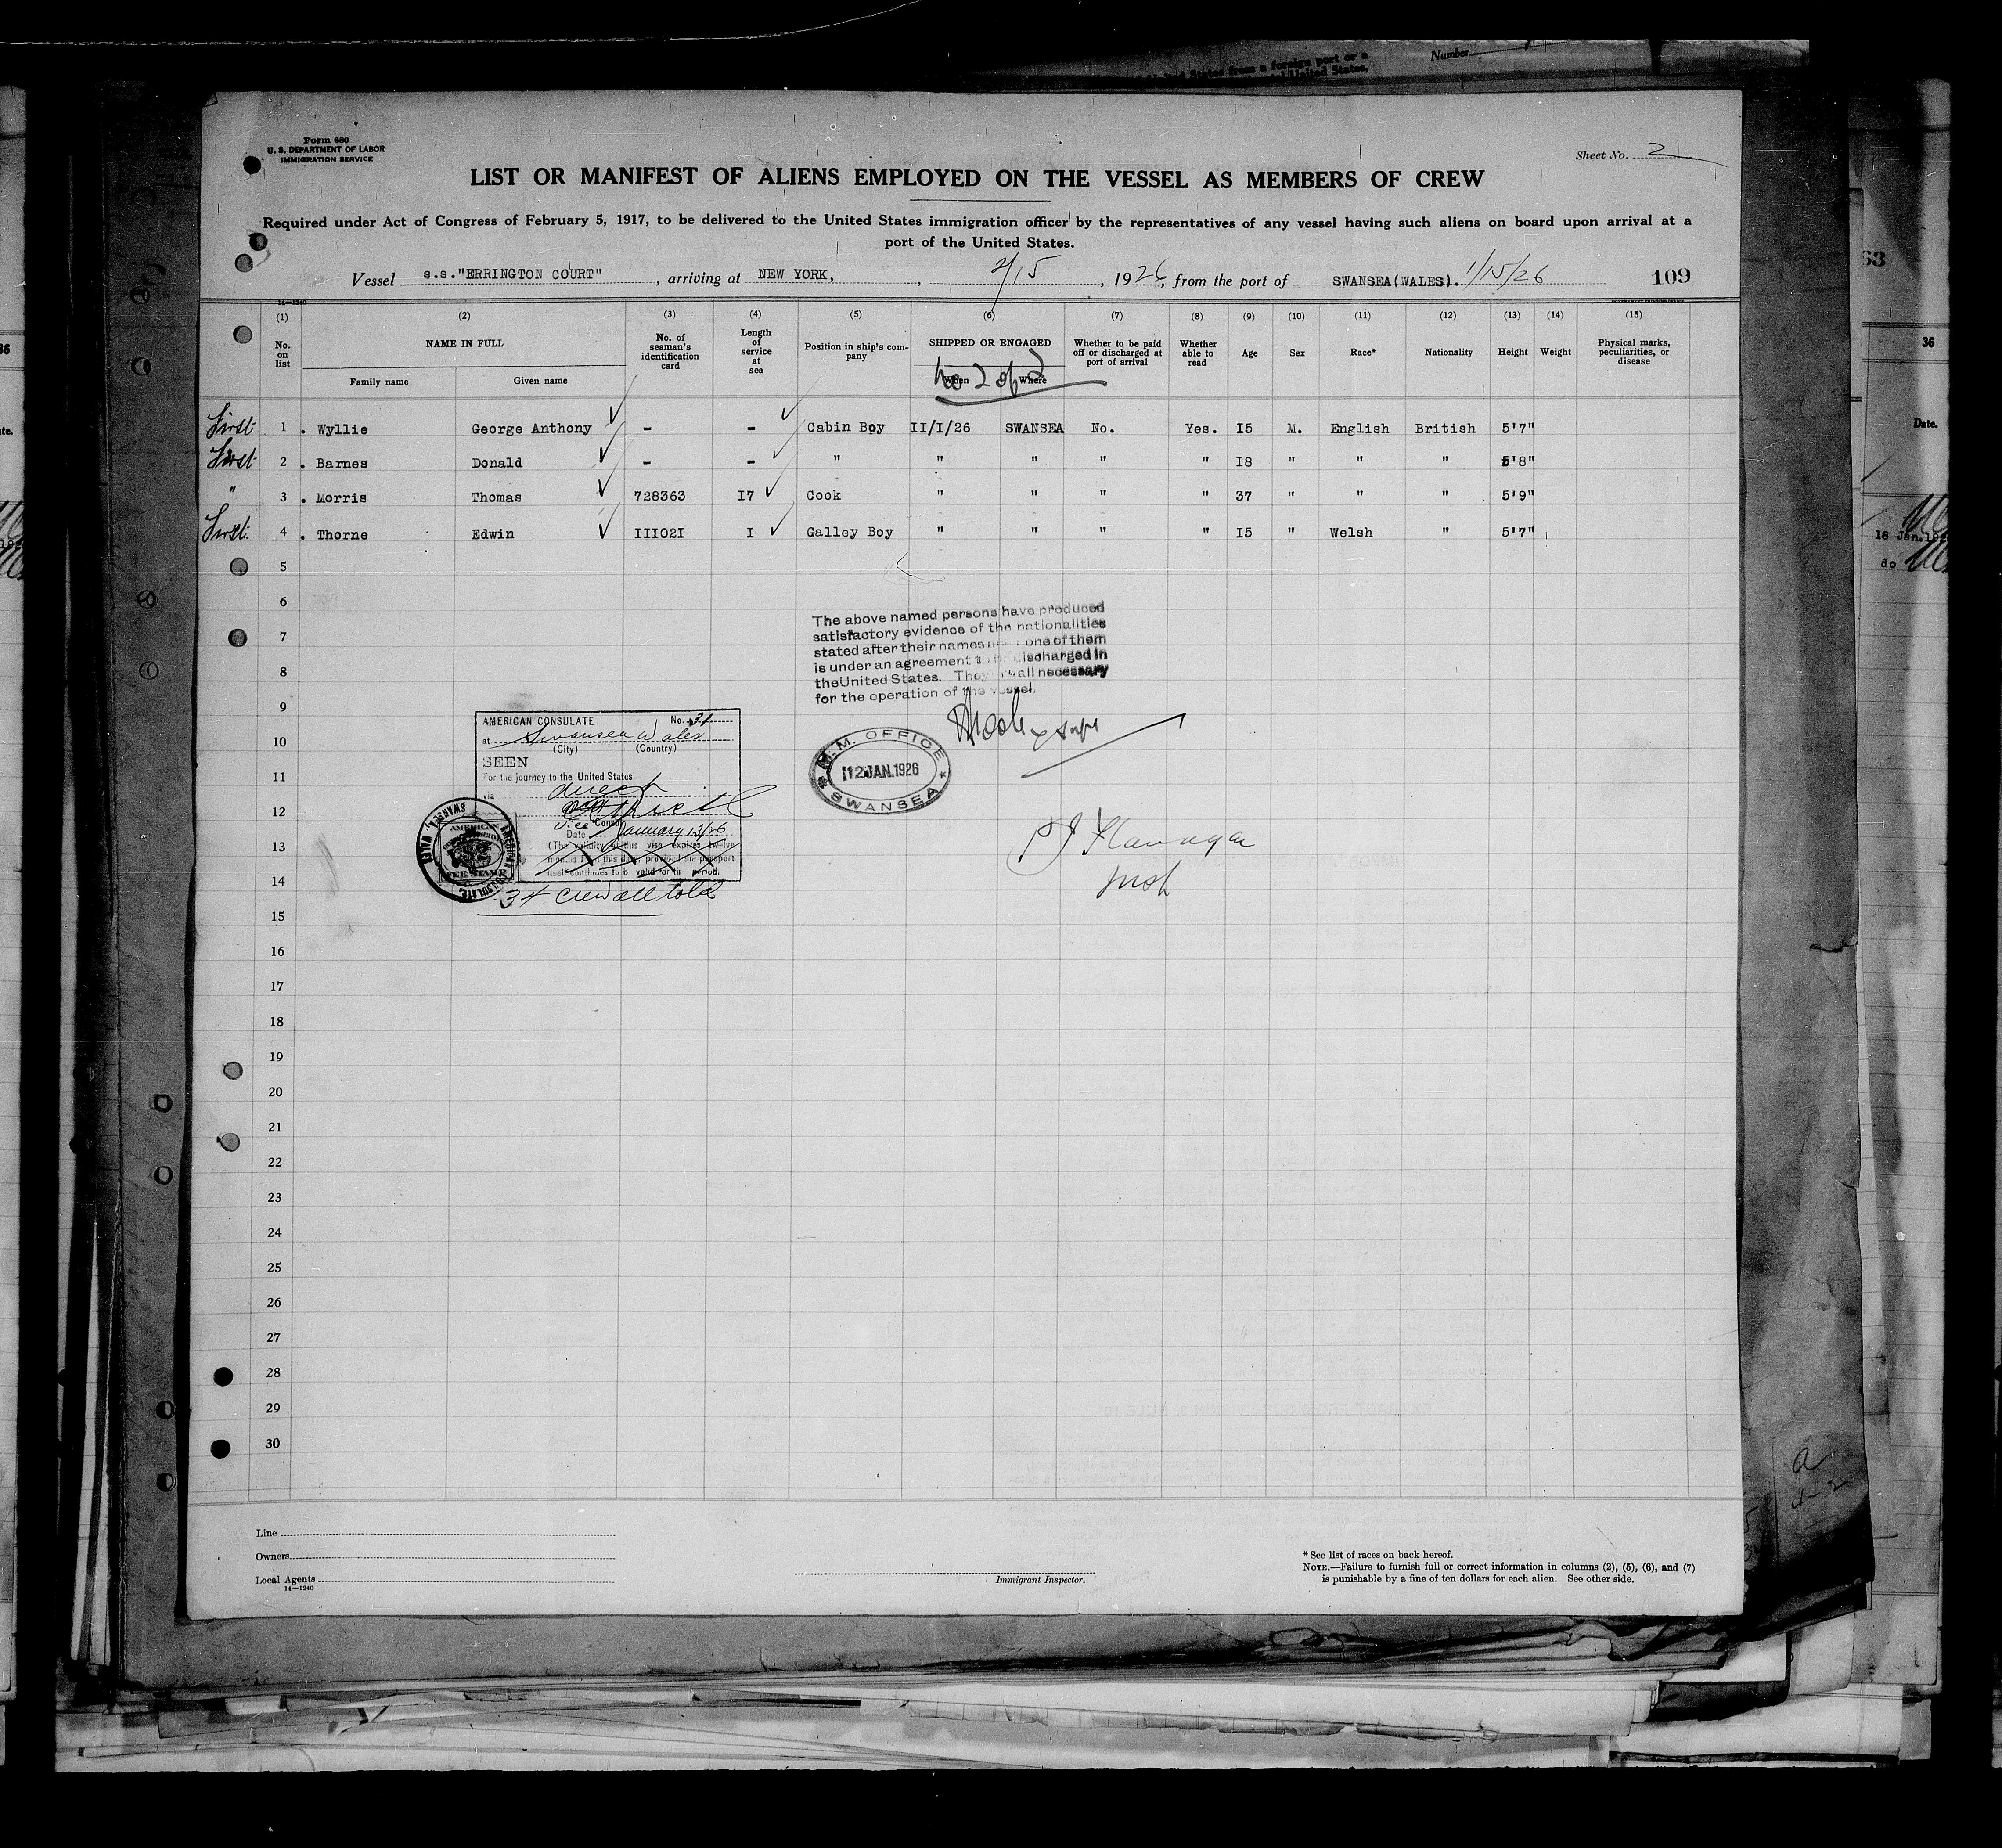 Number
United States from a foreign port or a
United States,
Form 680
U. S. DEPARTMENT OF LABOR
IMMIGRATION SERVICE
Sheet No. 2
LIST OR MANIFEST OF ALIENS EMPLOYED ON THE VESSEL AS MEMBERS OF CREW
Required under Act of Congress of February 5, 1917, to be delivered to the United States immigration officer by the representatives of any vessel having such aliens on board upon arrival at a
port of the United States.
Vessel s.s."ERRINGTON COURT", arriving at NEW YORK, 2/15, 1926, from the port of SWANSEA(WALES). 1/15/26 109
14—1240
(1) (2) (3) (4) (5) (6) (7) (8) (9) (10) (11) (12) (13) (14) (15)
No. on list NAME IN FULL No. of seaman's identification card Length of service at sea Position in ship's company SHIPPED OR ENGAGED Whether to be paid off or discharged at port of arrival Whether able to read Age Sex Race* Nationality Height Weight Physical marks, peculiarities, or disease
Family name Given name When Where
First 1 . Wyllie George Anthony - - Cabin Boy II/I/26 SWANSEA No. Yes. I5 M. English British 5'7"
First 2 . Barnes Donald - - " " " " " I8 " " " 5'8"
" 3 . Morris Thomas 728363 I7 Cook " " " " 37 " " " 5'9"
First. 4 . Thorne Edwin III02I I Galley Boy " " " " I5 " Welsh " 5'7"
5
6
7
8
9
10
11
12
13
14
15
16
17
18
19
20
21
22
23
24
25
26
27
28
29
30
The above named persons have produced
satisfactory evidence of the nationalities
stated after their names none of them
is under an agreement to be discharged in
the United States. They all necessary
for the operation of the vessel.
M.M. OFFICE
12 JAN. 1926
SWANSEA
AMERICAN CONSULATE No. 31
at Swansea Wales
(City) (Country)
SEEN
For the journey to the United States
via direct
Vice Consul
Date January 13/26
(The validity of this visa expires twelve
months from this date, provided the passport
itself continues to be valid for this period.
34 crew all told
P J Flanagan
Insp
Line
Owners
Local Agents
14—1240
Immigrant Inspector.
* See list of races on back hereof.
NOTE.—Failure to furnish full or correct information in columns (2), (5), (6), and (7)
is punishable by a fine of ten dollars for each alien. See other side.
36
Date.
18 Jan.
do